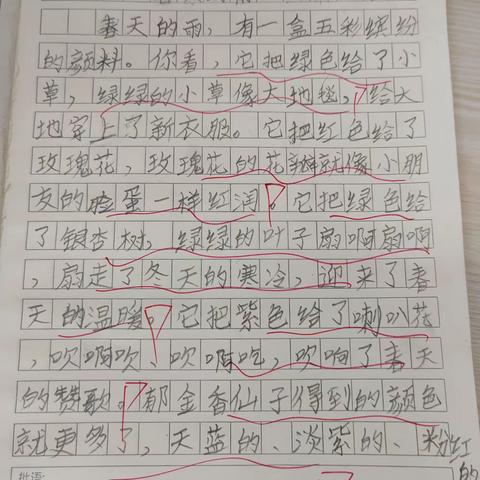 春天的雨，有一盒五彩缤纷
的颜料。你看，它把绿色给了小
草，绿绿的小草像大地毯，给大
地穿上了新衣服。它把红色给了
玫瑰花，玫瑰花的花瓣就像小朋
友的脸蛋一样红润。它把绿色给
了银杏树，绿绿的叶子扇啊扇啊
，扇走了冬天的寒冷，迎来了春
天的温暖。它把紫色给了喇叭花
，吹啊吹，吹啊吃，吹响了春天
的赞歌。郁金香仙子得到的颜色
就更多了，天蓝的、淡紫的、粉红
的
批语: